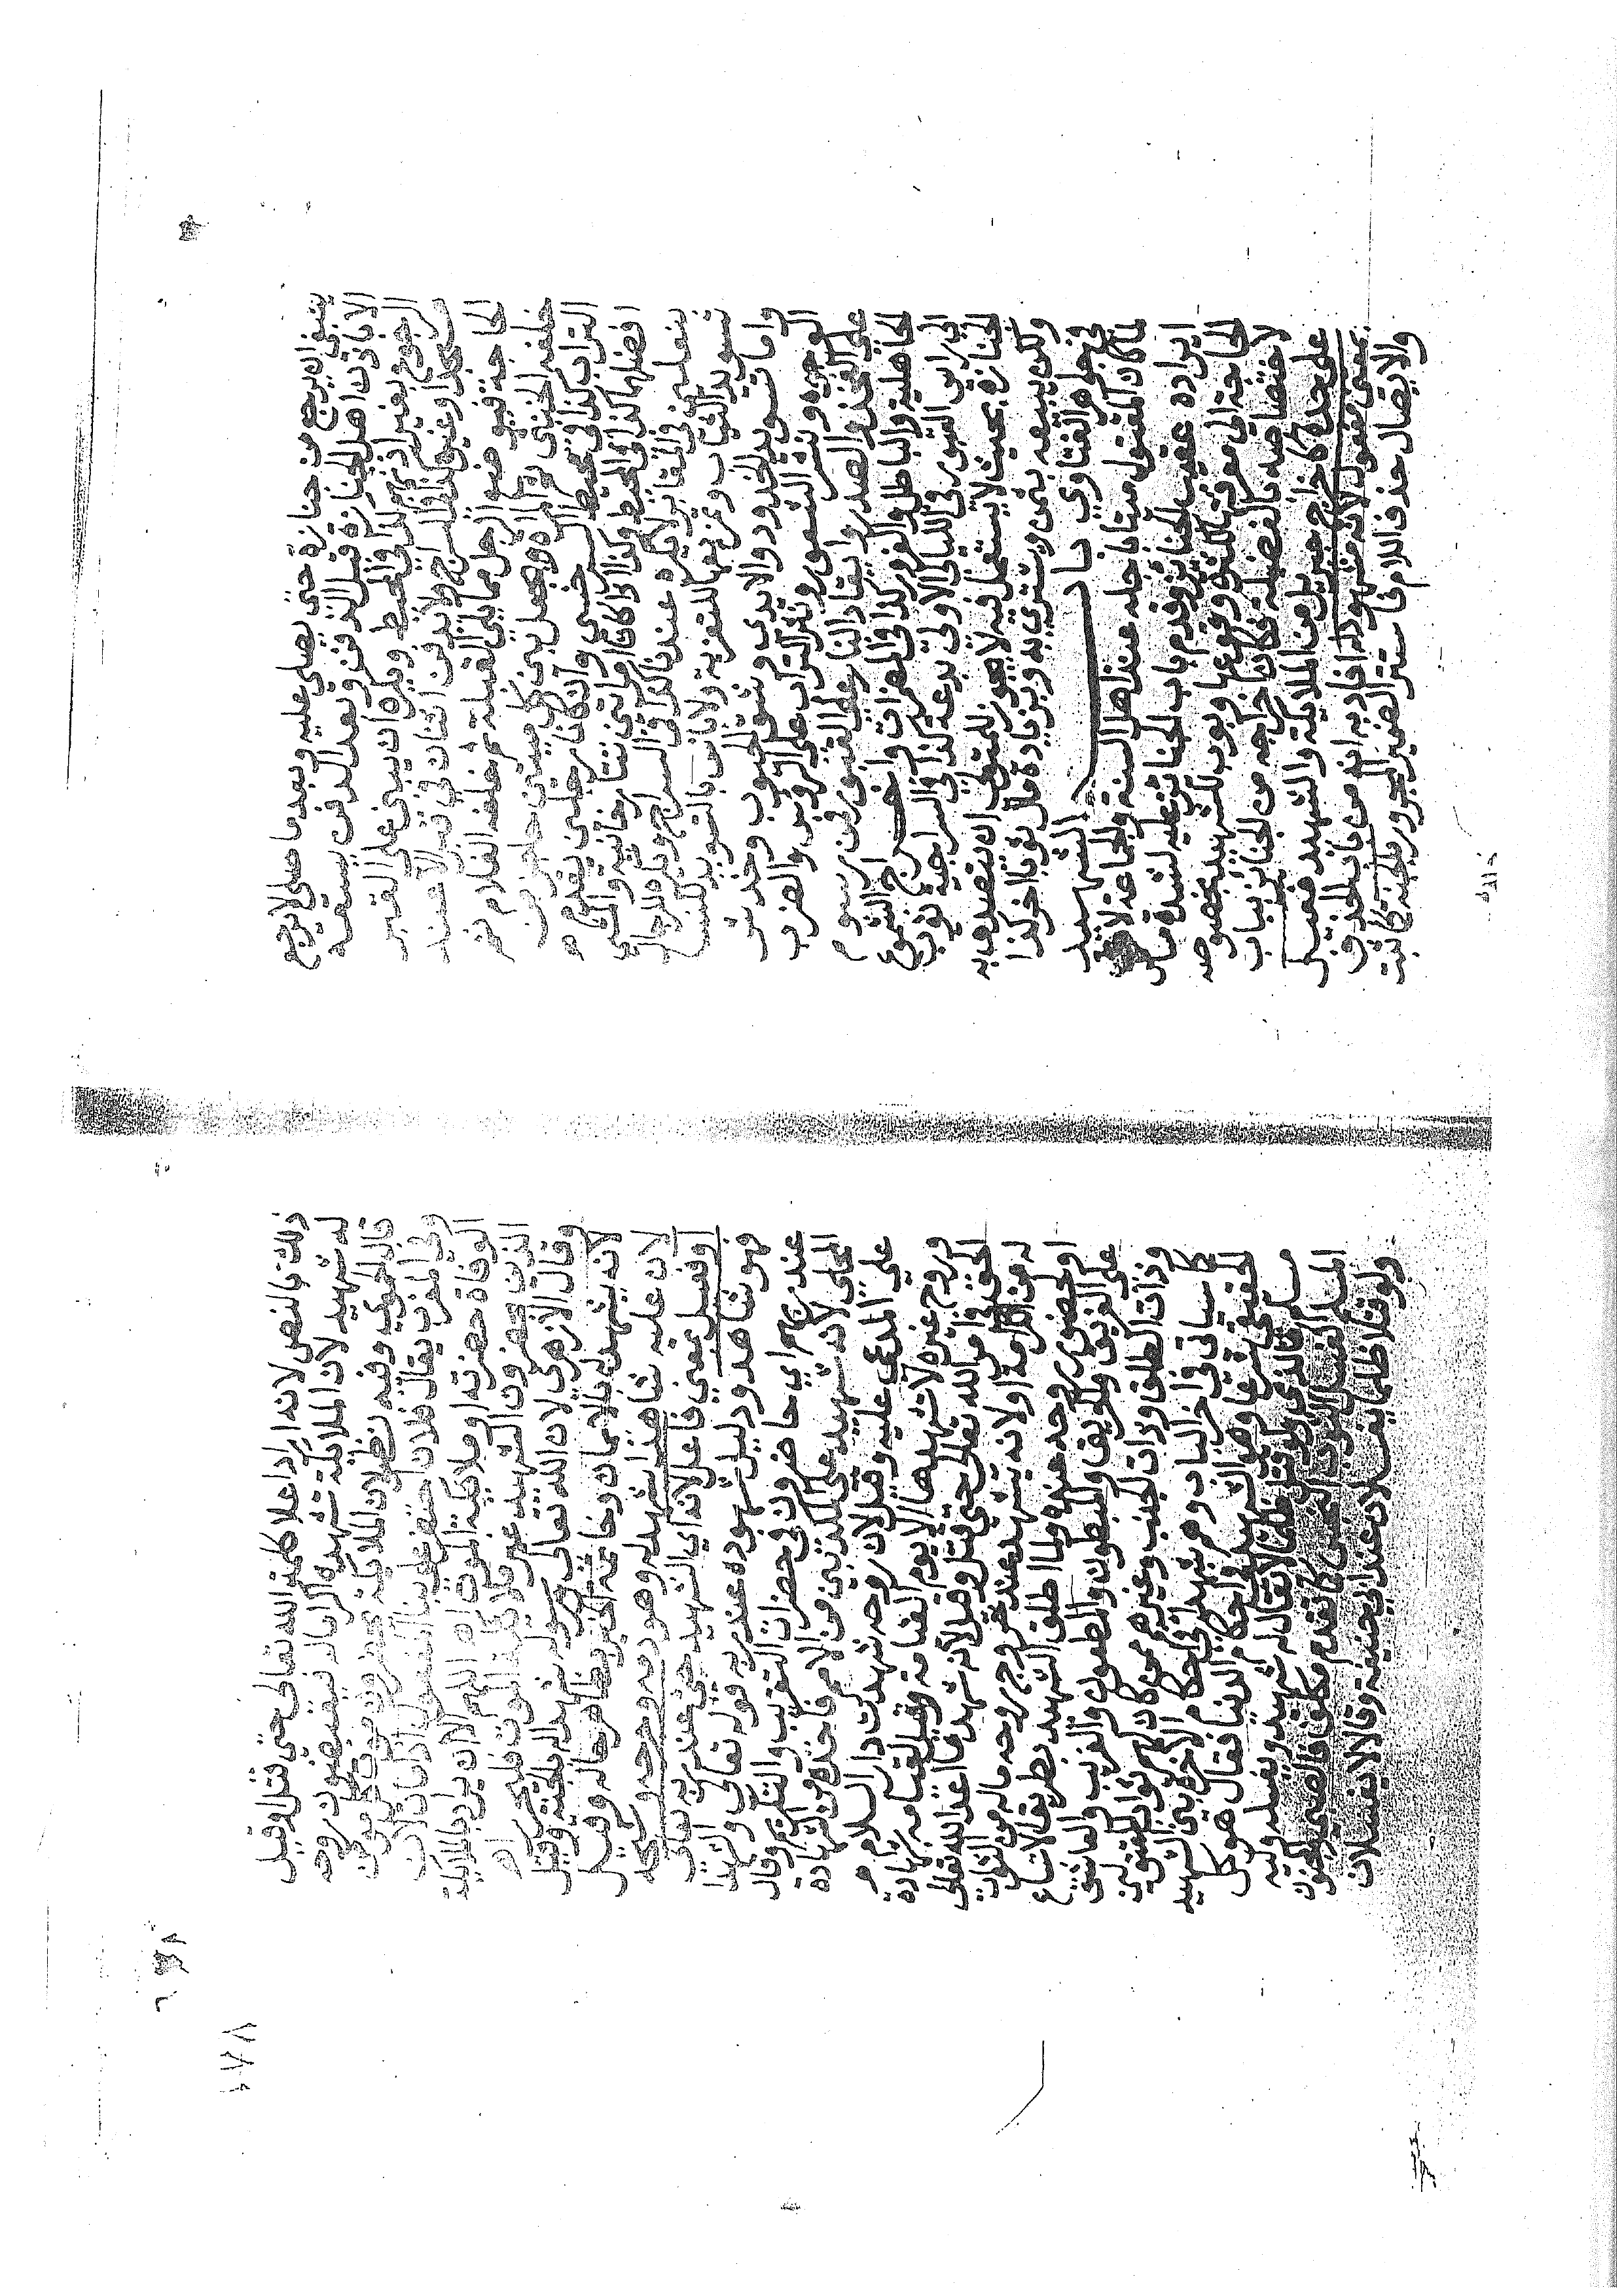 ينبغي ان يرجع من جنازة حتى يصلى عليه وبعد ما صلى لا يرجع
الا باذن اهل الجنازة قبل الدفن وبعد الدفن يسعه
الرجوع بغير اذنهم كذا في المحيط ويكره ان يبنى على القبر
مسجدا وغيره كذا في السراج ولا يدفن اثنان في قبر الا عند
الحاجة فيوضع الرجل مما يلي القبلة ثم خلفه الغلام ثم
خلفه الخنثى ثم المراة ويجعل بين كل ميتين حاجز من
التراب كذا في محيط السرخسي وان كانا رجلين يقدم
افضلهما كذا في المحيط وكذا اذا كانتا امراتين تتارخانية والمشي
بنعليه في المقابر لا يكره عندنا كذا في السراج ويكره للرجال
تسويد الثياب وتمزيقها للتعزية ولا باس بالتسويد للنساء
واما تسويد الخدود والايدي وشق الجيوب وخدش
الوجوه ونشر الشعور ونثر التراب على الروس والضرب
على الفخذ والصدر وايقاد النار على القبور فمن رسوم
الجاهلية والباطل والغرور كذا في المضمرات واخراج الشموع
الى راس القبور في الليالي الاولى بدعة كذا في السراجية ثوب
الجنازة بحيث لا يستعمل فيه لا يجوز للمتولي ان يتصدق به
ولكن يبيعه بثمن ويشتري به وبزيادة مال ثوبا اخر كذا
في جواهر الفتاوي باب الشهيد
لما كان المقتول ميتا باجله عند اهل السنة والجماعة لا
ايراده عقيب الجنايز وقدم باب الجنائز عليه لشدة مساس
الحاجة الى معرفتها لكثرة وقوعها وبوب للشهيد بخصوصه
لاختصاصه بالفضيلة فكان اخراجه من الجنائز بباب
على حدة كاخراج جبريل من الملايكة والشهيد فعيل
بمعنى مفعول لانه مشهود له افاد به انه من باب الحذف
والايصال حذف اللام فاستتر الضمير المجرور بالجنة كما ثبت
ذلك بالنص لانه اراد اعلا كلمة الله تعالى حتى قتل وقيل
له شهيد لان الملائكة تشهده اكراما له روحه
قاله الحموي وفيه نظر لان الملائكة يحضرون موت كل مؤمن
وفي المغرب يقال فلان احتضر
الوفاة حضرته او ملائكة الموت اه اللهم الا ان يراد بالملايكة
الذين يحضرون الشهيد غير ملائكة الموت فليحرر اه
وقال الازهري لان الله تعالى ورسوله شهدا له بالجنة وقيل
لانه يشهد له بالايمان وخاتمة الخير بظاهر حاله وقيل
لان عليه شاهدا يشهد له وهو دمه وجرحه
او فعيل بمعني فاعل لانه اي الشهيد حي عند ربه تعالى
فهو شاهد ودليل شهوده عند ربه قوله تعالى والشهدا
عند ربهم اي حاضرون في حضرات التقريب والتكريم وقال
لانه شهيد على المكذبين من الامم فاخذه من شهادة
على المدعى عليه وقيل لان روحه شهدت دار السلام
وروح غيره لا تشهدها الا يوم القيامة وقيل لقيامه بشهادة
الحق في امر الله تعالى حتى قتل وقيل لانه شهد ما اعد الله تعالى
له من الكرامة اولانه يشهد عند خروج روحه ماله من الثواب
او لحضور روحه عنده ولما اطلق الشهيد بطريق الاتساع
على الغريق والحريق والمبطون والمطعون والغريب والعاشق
وذات الطلق وذات الجنب وغيرهم ممن كان لهم ثواب المقتولين
كما سياتي في اخر الباب وهم شهداء في احكام الاخرة بين الشهيد
الحقيقي شرعا وهو الشهيد في احكام الدنيا فقال هو كل
مسلم فالذمي ولو قتل ظلما لا يقال له شهيد ويغسله وليه
المسلم الغسل كما تقدم مكلف فالصبي والمجنون
ولو قتلا ظلما يغسلان عند ابي حنيفة وقالا لا يغسلان